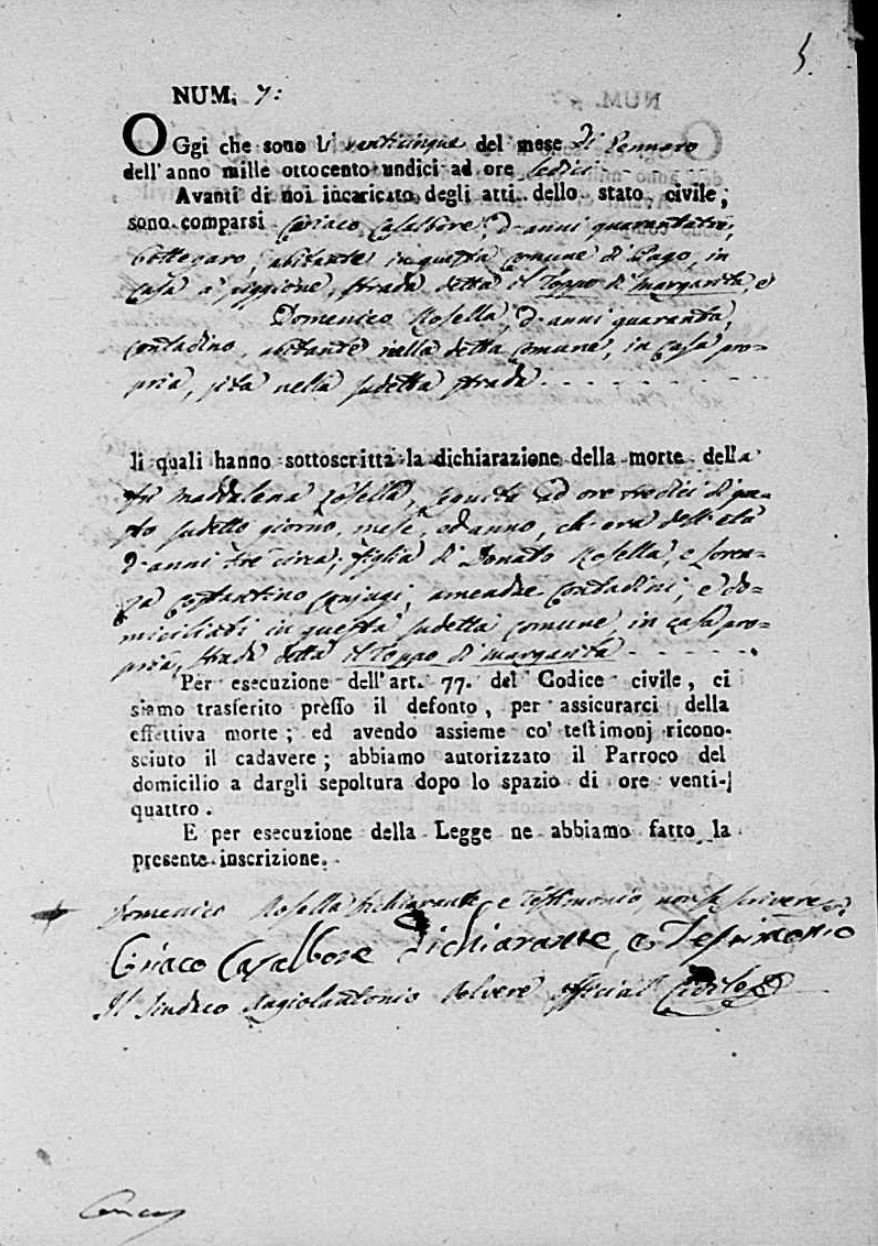 5.
NUM. 7:
OGgi che sono li venticinque del mese di Gennaro
dell'anno mille ottocento undici ad ore sedici
Avanti di noi incaricato degli atti dello stato civile,
sono comparsi Ciriaco Casalbore, d'anni quarantatre,
bottegaro, abitante in questa comune di Pago, in
casa a piggione, strada detta il Toppo di Margarita, e
Domenico Rosella, d'anni quaranta,
contadino, abitante nella detta comune, in casa pro=
pria, sita nella sudetta strada
li quali hanno sottoscritta la dichiarazione della morte della
fu Maddalena Rosella, seguita ad ore tredici di que=
sto sudetto giorno, mese, ed anno, ch'era dell'età
d'anni tre circa, figlia di Donato Rosella, e Loren=
za Costantino conjugi, amendue contadini, e do=
miciliati in questa sudetta comune, in casa pro=
pria, strada detta il Toppo di Margarita
Per esecuzione dell'art. 77. del Codice civile, ci
siamo trasferito presso il defonto, per assicurarci della
effettiva morte; ed avendo assieme co' testimonj ricono-
sciuto il cadavere; abbiamo autorizzato il Parroco del
domicilio a dargli sepoltura dopo lo spazio di ore venti-
quattro.
E per esecuzione della Legge ne abbiamo fatto la
presente inscrizione.
Domenico Rosella dichiarante, e Testimonio, non sa scrivere
Ciriaco Casalbore dichiarante, e Testimonio
Il Sindaco Angiolantonio Polvere officiale Civile